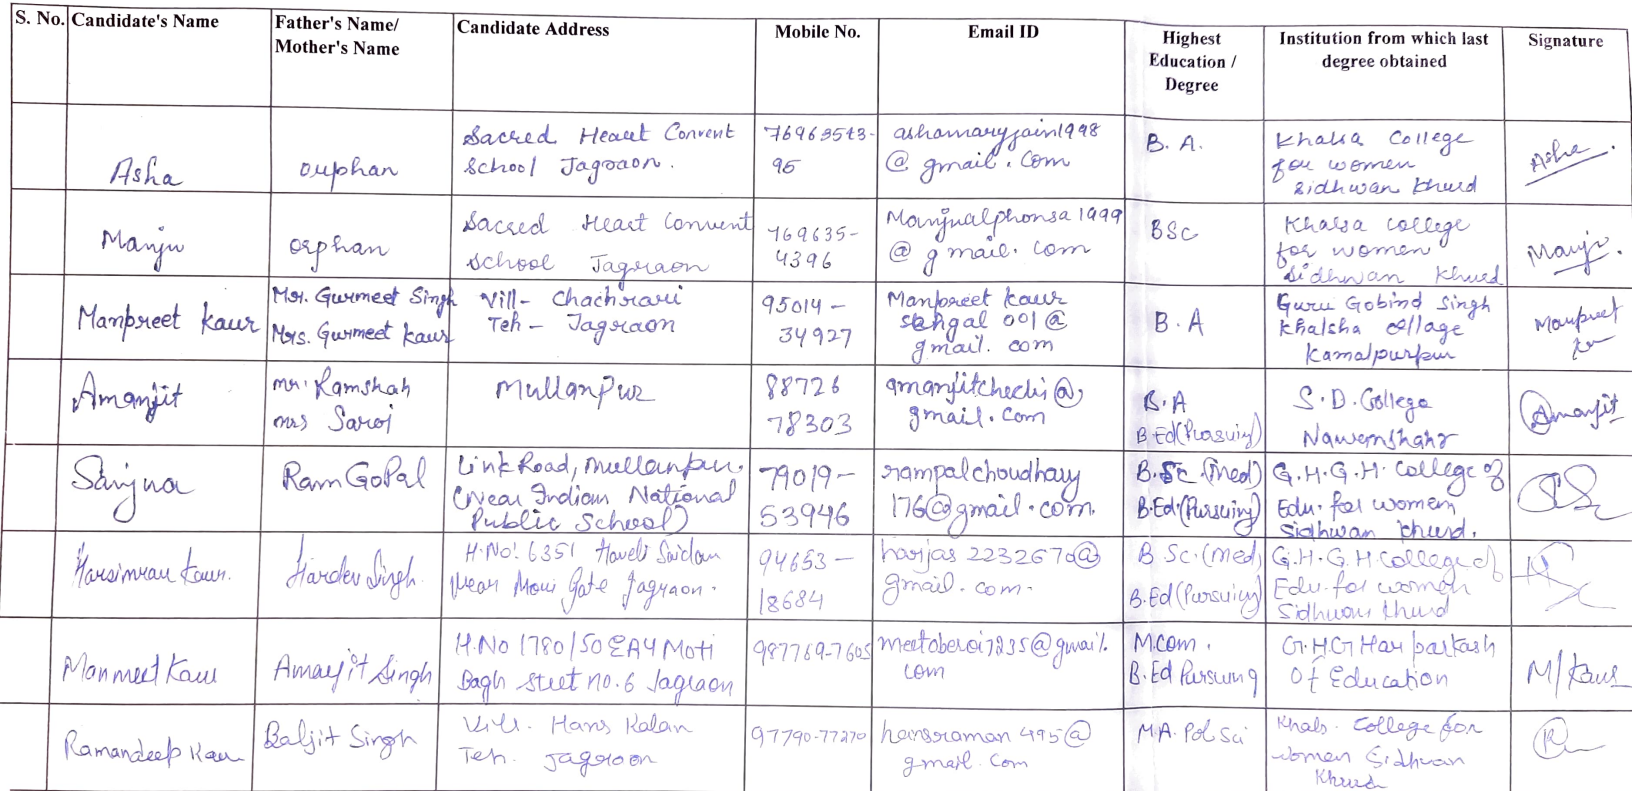 S. No. Candidate's Name Father's Name/ Mother's Name Candidate Address Mobile No. Email ID Highest Education / Degree Institution from which last degree obtained Signature
Asha
ouphan
Sacred Heart Convent
School Jagraon.
76963543-
95
ashamaryjain1998
@ gmail. Com
B. A.
Khalsa College
for women
sidhwan khurd
Asha
Manju
orphan
Sacred Heart Convent
school Jagraon
769635-
4396
Manjualphonsa1999
@ gmail. com
BSc
Khalsa college
for women
Sidhwan Khurd
Manju.
Manpreet kaur
Mr. Gurmeet Singh
Mrs. Gurmeet kaur
Vill- Chachrari
Teh - Jagraon
95014 -
34927
Manpreet kaur
sehgal 001@
gmail. com
B.A
Guru Gobind Singh
Khalsha collage
Kamalpurpur
Manpreet
Amanjit
mr. Ramshah
mrs Saroj
Mullanpur
88726
78303
amanjitchechi@
gmail.com
B.A
B.Ed(Pursuing)
S.D.College
Nawemshahr
Amanjit
Sanjna
Ram GoPal
Link Road, Mullanpur.
(Near Indian National
Public School)
79019-
53946
rampalchoudhary
176@gmail.com.
B.Sc (Med)
B.Ed.(Pursuing)
G.H.G.H. College of
Edu. for women
Sidhwan khurd.
Harsimran Kaur.
Hardev Singh.
H.No! 6351 Haveli
Near Mori Gate Jagraon.
94653 -
18684
harjas 2232670@
gmail.com.
B.Sc.(Med)
B.Ed(Pursuing)
G.H.G.H College of
Edu. for women
Sidhwan khurd
Manmeet Kaur
Amarjit Singh
H.No 1780/50 Moti
Bagh Street no.6 Jagraon
987769-7605
meetoberoi7235@gmail.
com
M.com.
B.Ed Pursuing
G.H.G Harparkash
Of Education
M/Kaur
Ramandeep Kaur
Baljit Singh
Vill. Hans Kalan
Teh. Jagraon
97790-77270
hansraman495@
gmail.com
M.A. Pol Sci
Khals. College for
women Sidhwan
Khurd